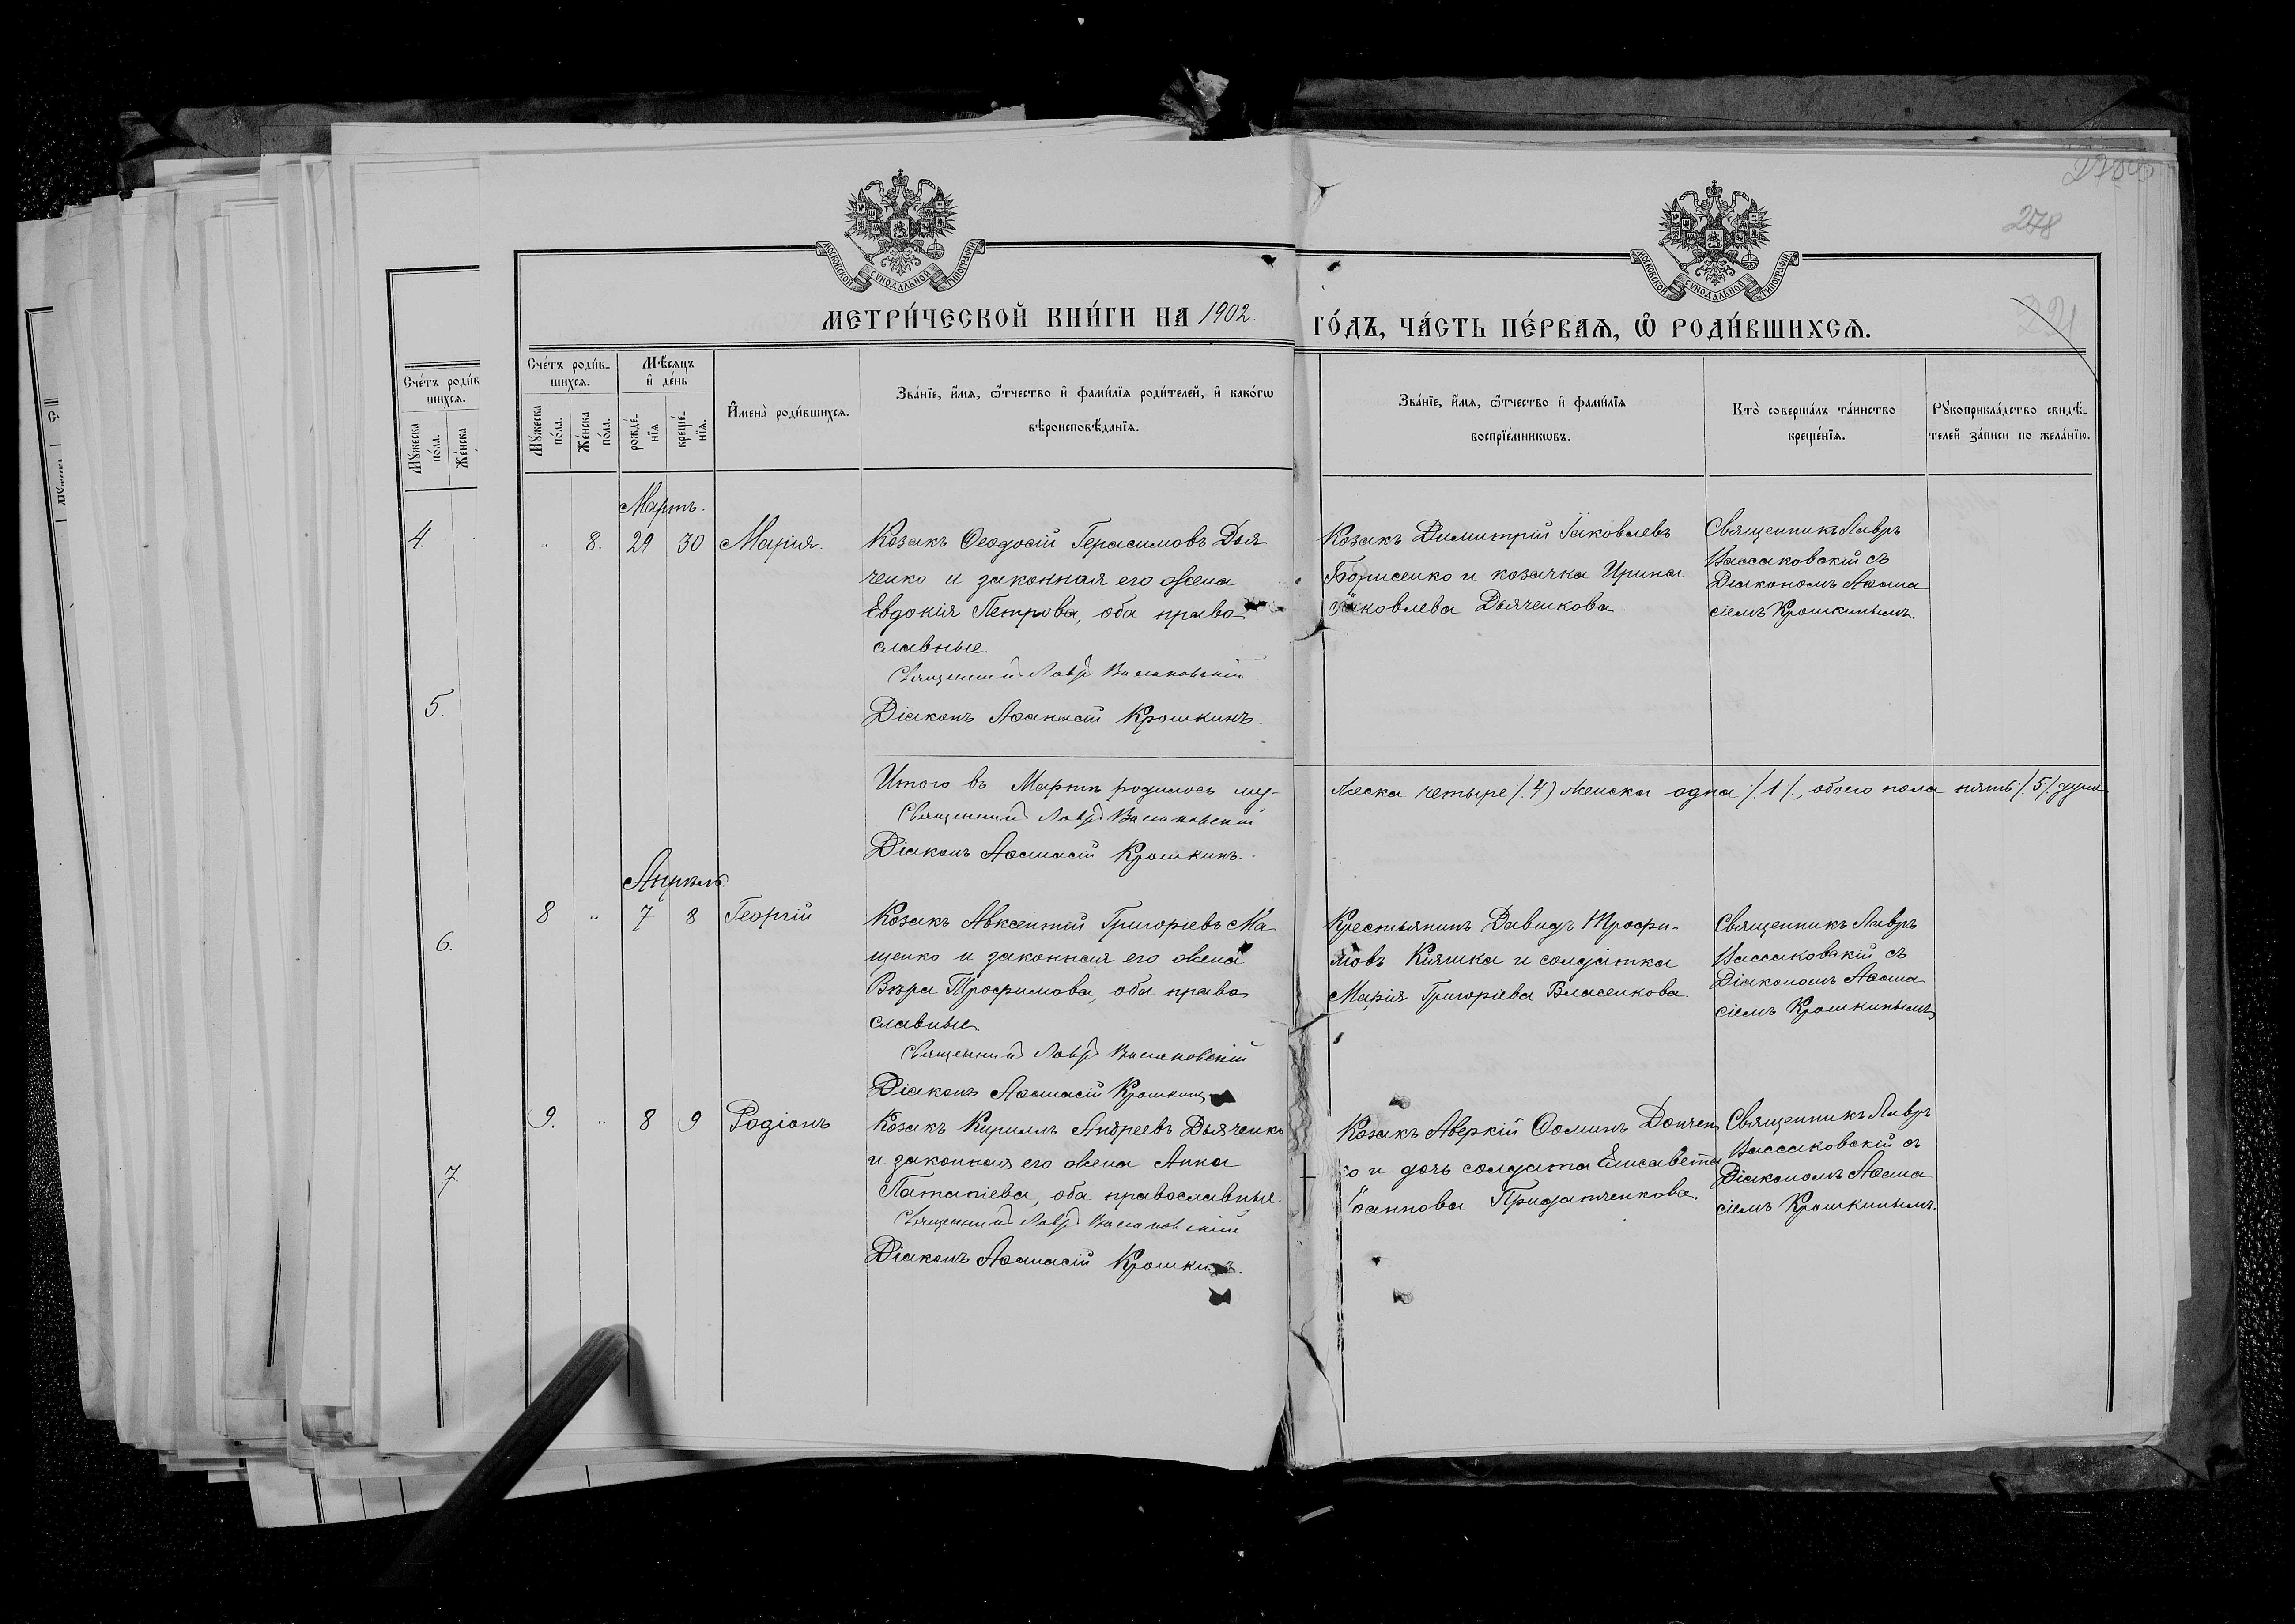 МОСКОВСКОЙ СѴНОДАЛЬНОЙ ТИПОГРАФІИ
МОСКОВСКОЙ СѴНОДАЛЬНОЙ ТИПОГРАФІИ
278
221
МЕТРИ́ЧЕСКОЙ КНИ́ГИ НА 1902. ГО́ДЪ, ЧА́СТЬ ПЕ́РВАѦ, Ѡ҆ РОДИ́ВШИХСѦ.
Сче́тъ роди́в-
шихсѧ.
Мꙋ́жеска по́ла.
Же́нска
4.
5.
6.
7.
Сче́тъ роди́в-
шихсѧ.
Мꙋ́жеска по́ла.
Же́нска по́ла.
Мѣ́сѧцъ
и҆ де́нь
рожде́-
нїѧ
креще́-
нїѧ.
И҆мена̀ роди́вшихсѧ.
Зва́нїе, и҆́мѧ, ѻ҆́тчество и҆ фами́лїѧ роди́телей, и҆ како́гѡ
вѣроисповѣ́данїѧ.
Зва́нїе, и҆́мѧ, ѻ҆́тчество и҆ фами́лїѧ
воспрїе́мникѡвъ.
Кто̀ соверша́лъ та́инство
креще́нїѧ.
Рꙋкоприкла́дство свидѣ́-
телей за́писи по жела́нїю.
Мартъ.
" 8. 29 30 Марія.
Козакъ Ѳеодосій Герасимовъ Дья
ченко и законная его жена
Евдокія Петрова, оба право-
славные.
Священникъ Лавръ Вассаковскій
Діаконъ Аѳанасій Крошкинъ.
Козакъ Димитрій Іаковлевъ
Борисенко и козачка Ирина
Іаковлева Дьяченкова.
Священникъ Лавръ
Вассаковскій съ
Діакономъ Аѳана
сіемъ Крошкинымъ.
Итого въ Мартѣ родилось му-жеска четыре /.4/ женска одна /.1/., обоего пола пять /.5/. душъ
Священникъ Лавръ Вассаковскій
Діаконъ Аѳанасій Крошкинъ.
Апрѣль
8 " 7 8 Георгій
Козакъ Авксентій Григоріевъ Ма-
щенко и законная его жена
Вѣра Трофимова, оба право
славные.
Священникъ Лавръ Вассаковскій
Діаконъ Аѳанасій Крошкинъ
Крестьянинъ Давидъ Трофи-
мовъ Кіяшка и солдатка
Марія Григоріева Власенкова.
Священникъ Лавръ
Вассаковскій съ
Діакономъ Аѳана
сіемъ Крошкинымъ
9. " 8 9 Родіонъ
Козакъ Кириллъ Андреевъ Дьяченко
и законная его жена Анна
Патапіева, оба православные.
Священникъ Лавръ Вассаковскій
Діаконъ Аѳанасій Крошкинъ.
Козакъ Аверкій Ѳоминъ Дончен
ко и дочь солдата Елисавета
Іоаннова Придатченкова.
Священникъ Лавръ
Вассаковскій съ
Діакономъ Аѳана
сіемъ Крошкинымъ.